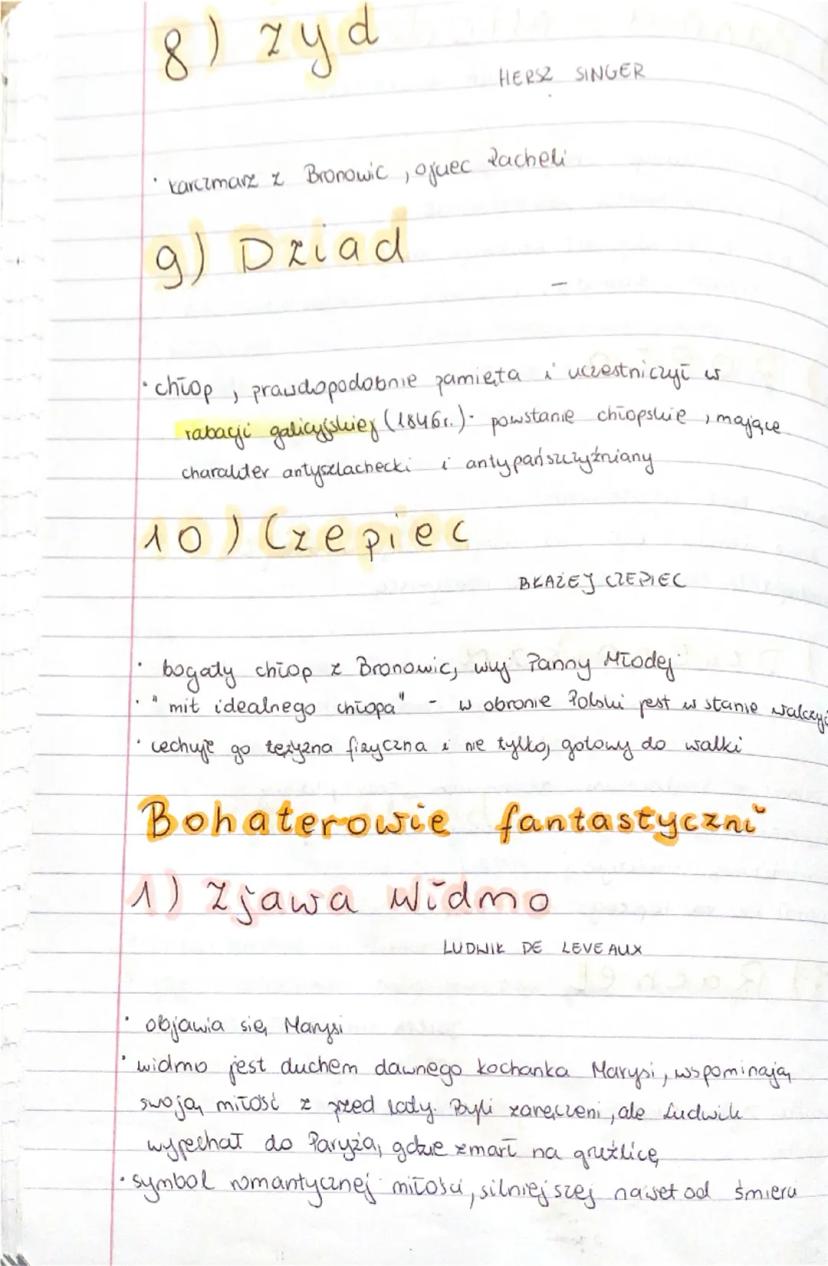 8) Żyd
HERSZ SINGER
· karczmarz z Bronowic, ojciec Racheli
9) Dziad
–
· chłop, prawdopodobnie pamięta i uczestniczył w
rabacji galicyjskiej (1846r.) - powstanie chłopskie, mające
charakter antyszlachecki i antypańszczyźniany
10) Czepiec
BŁAŻEJ CZEPIEC
· bogaty chłop z Bronowic, wuj Panny Młodej
· "mit idealnego chłopa" - w obronie Polski jest w stanie walczyć
· cechuje go tężyzna fizyczna i nie tylko, gotowy do walki
Bohaterowie fantastyczni
1) Zjawa Widmo
LUDWIK DE LEVEAUX
· objawia się Marysi
· widmo jest duchem dawnego kochanka Marysi, wspominają
swoją miłość z przed laty. Byli zaręczeni, ale Ludwik
wyjechał do Paryża, gdzie zmarł na gruźlicę
· symbol romantycznej miłości, silniejszej nawet od śmierci